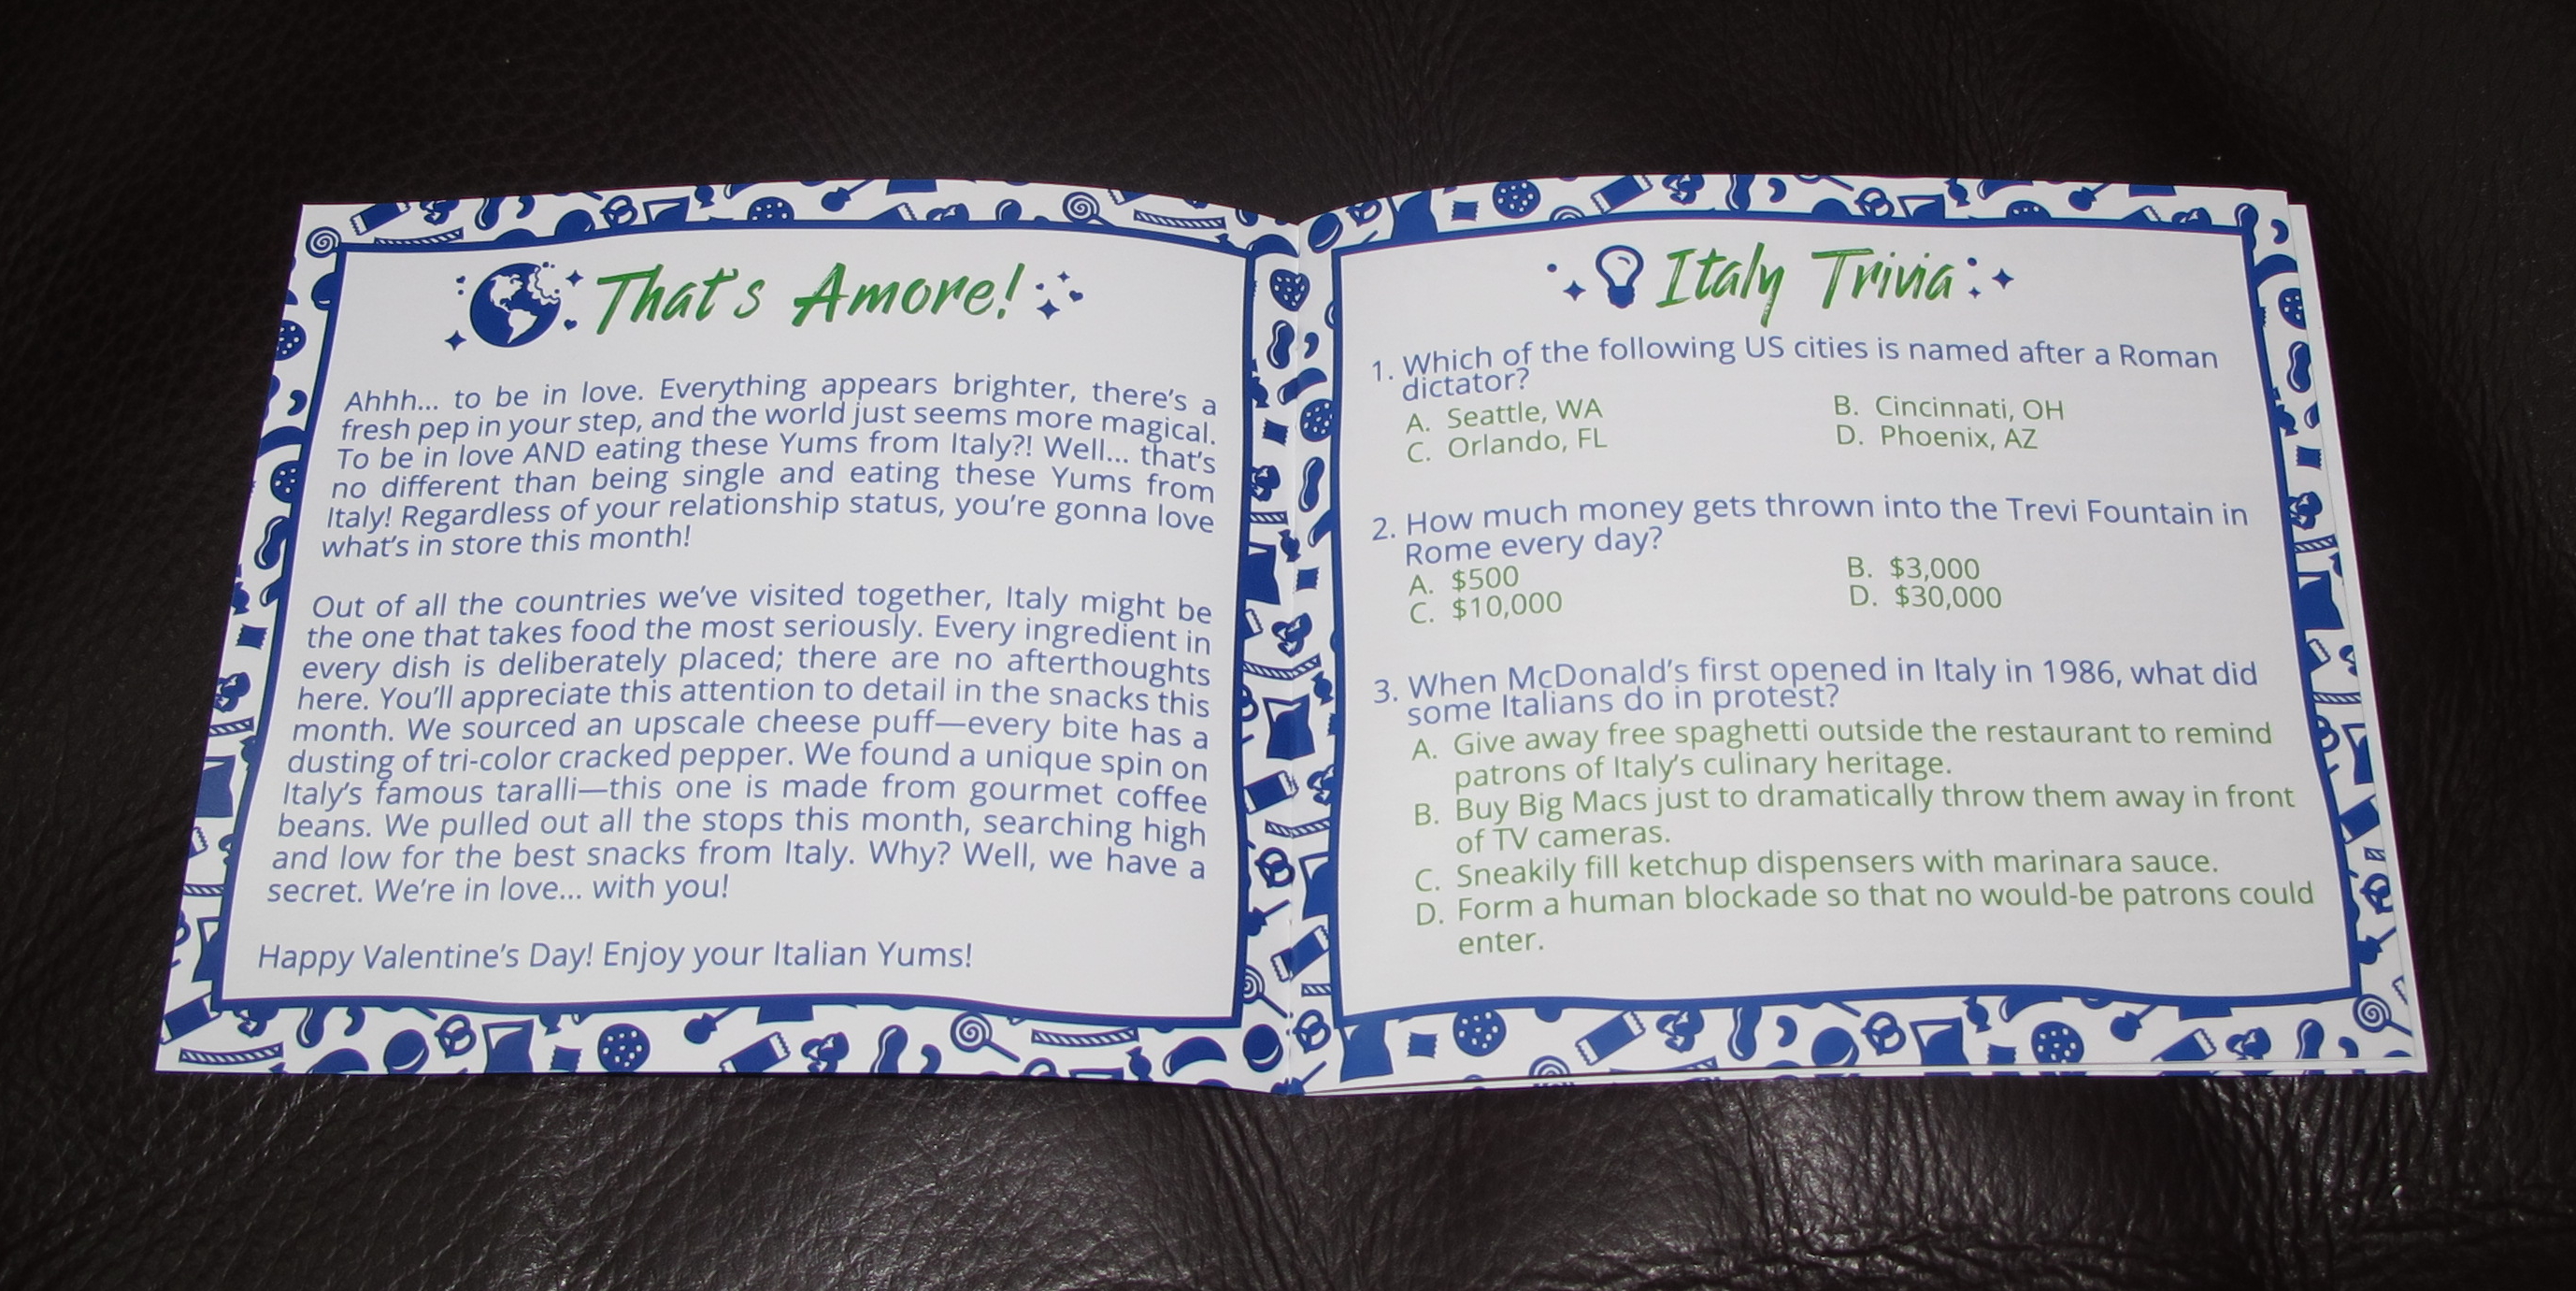 That's Amore!
Ahhh... to be in love. Everything appears brighter, there's a
fresh pep in your step, and the world just seems more magical.
To be in love AND eating these Yums from Italy?! Well... that's
no different than being single and eating these Yums from
Italy! Regardless of your relationship status, you're gonna love
what's in store this month!
Out of all the countries we've visited together, Italy might be
the one that takes food the most seriously. Every ingredient in
every dish is deliberately placed; there are no afterthoughts
here. You'll appreciate this attention to detail in the snacks this
month. We sourced an upscale cheese puff—every bite has a
dusting of tri-color cracked pepper. We found a unique spin on
Italy's famous taralli—this one is made from gourmet coffee
beans. We pulled out all the stops this month, searching high
and low for the best snacks from Italy. Why? Well, we have a
secret. We're in love... with you!
Happy Valentine's Day! Enjoy your Italian Yums!
Italy Trivia
1. Which of the following US cities is named after a Roman
dictator?
A. Seattle, WA B. Cincinnati, OH
C. Orlando, FL D. Phoenix, AZ
2. How much money gets thrown into the Trevi Fountain in
Rome every day?
A. $500 B. $3,000
C. $10,000 D. $30,000
3. When McDonald's first opened in Italy in 1986, what did
some Italians do in protest?
A. Give away free spaghetti outside the restaurant to remind
patrons of Italy's culinary heritage.
B. Buy Big Macs just to dramatically throw them away in front
of TV cameras.
C. Sneakily fill ketchup dispensers with marinara sauce.
D. Form a human blockade so that no would-be patrons could
enter.